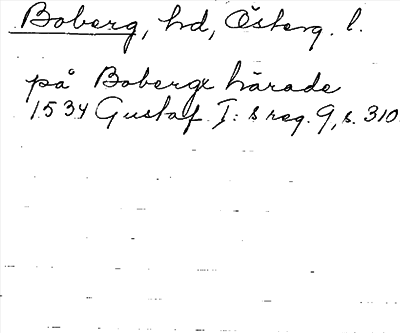 Boberg, hd, Österg. l.
på Boberge härade
1534 Gustaf I:s reg. 9, s. 310